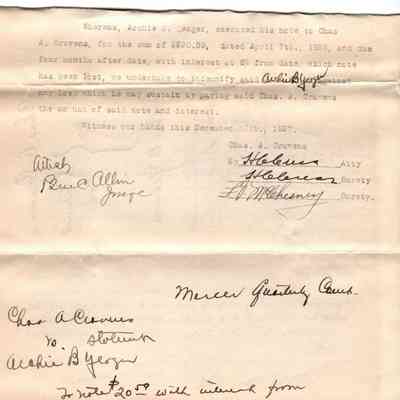 Whereas, Archie B. Yeager, executed his note to Chas
A. Cravens, for the sum of dated April 7th., and due
four months after date, with interest at 6% from date, which note
has been lost, we undertake to idemnify said Archie B Yeager against
any loss which he may sustain by paying said Chas. A. Cravens
the amount of said note and interest.
Witness our hands this December
Chas. A. Cravens
By Atty
Surety
McChesney Surety.
Attest
Ben C Allin
Judge
Mercer Quarterly Court.
Chas A Cravens
vs.
Archie B Yeager
To note $20 50 with interest from